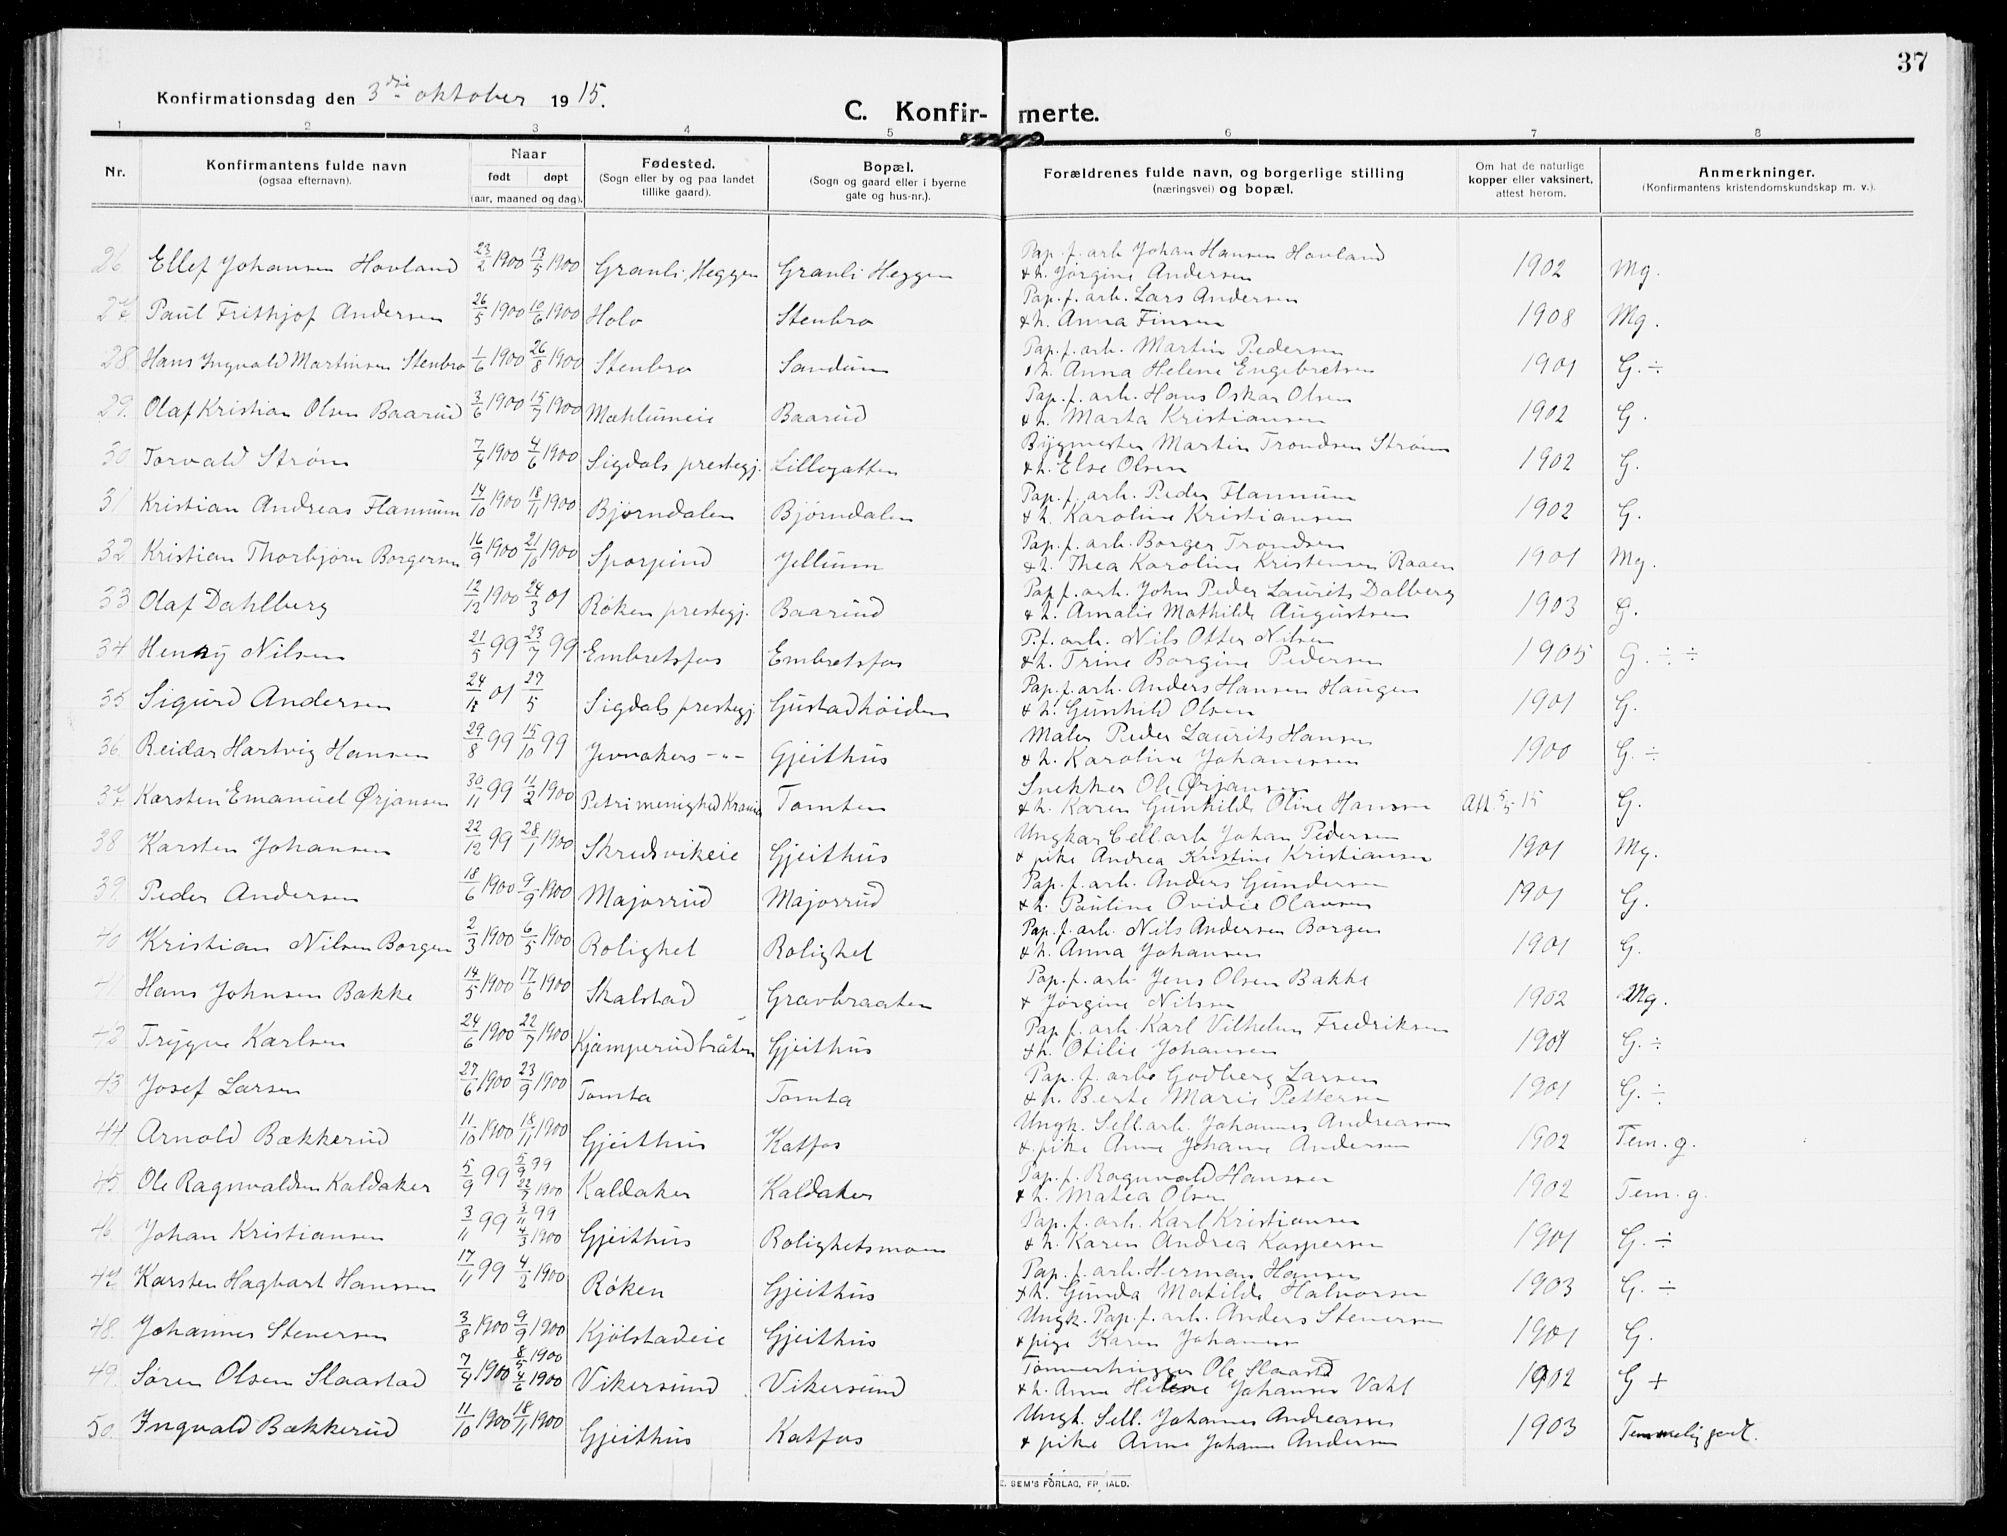 37
Konfirmationsdag den 3die oktober 1915.
C. Konfir-merte.
1 2 3 4 5 6 7 8
Nr.
Konfirmantens fulde navn
(ogsaa efternavn).
Naar
født døpt
(aar, maaned og dag).
Fødested.
(Sogn eller by og paa landet
tillike gaard).
Bopæl.
(Sogn og gaard eller i byerne
gate og hus-nr.).
Forældrenes fulde navn, og borgerlige stilling
(næringsvei) og bopæl.
Om hat de naturlige
kopper eller vaksinert,
attest herom.
Anmerkninger.
(Konfirmantens kristendomskundskap m. v.).
26 Ellef Johansen Hovland 23/2 1900 13/5 1900 Granli, Heggen Granli Heggen Pap. f. arb Johan Hansen Hovland
& h. Jørgine Andersen 1902 Mg.
27 Paul Frithjof Andersen 26/5 1900 10/6 1900 Holo Stenbro Pap. f. arb. Lars Andersen
& h. Anna Finsen 1908 Mg.
28 Hans Ingvald Martinsen Stenbro 1/6 1900 26/8 1900 Stenbro Sandum Pap. f. arb. Martin Pedersen
& h. Anna Helene Engebretsen 1901 G. ÷
29. Olaf Kristian Olsen Baarud 3/6 1900 15/7 1900 Mæhlumeie Baarud Pap. f. arb. Hans Oskar Olsen
& h. Marta Kristiansen 1902 G.
30 Torvald Strøm 7/4 1900 4/6 1900 Sigdals prestegj. Lillogatten Bygmester Martin Trondsen Strøm
& h. Else Olsen 1902 G.
31 Kristian Andreas Flannum 14/10 1900 18/11 1900 Bjørndalen Bjørndalen Pap. f. arb. Peder Flannum
& h. Karoline Kristiansen 1902 G.
32 Kristian Thorbjørn Borgersen 16/9 1900 21/10 1900 Sporpind Jellum Pap. f. arb. Borger Trondsen
& h. Thea Karoline Kristensen Raaen 1901 Mg.
33 Olaf Dahlberg 12/12 1900 24/3 01 Røken prestegj. Baarud Pap f. arb. John Peder Laurits Dalberg
& h. Amalie Mathilde Augustsen 1903 G.
34 Henry Nilsen 21/5 99 23/7 99 Embretsfos Embretsfos P.f. arb. Nils Otter Nilsen
& h. Trine Borgine Pedersen 1905 G. ÷ ÷
35 Sigurd Andersen 24/ 01 27/5 Sigdals prestegj. Gustadhøiden Pap. f. arb. Anders Hansen Haugen
& h. Gunhild Olsen 1901 G.
36. Reidar Hartvig Hansen 29/8 99 15/10 99 Jevnakers -"- Gjeithus Maler Peder Laurits Hansen
& h. Karoline Johannessen 1900 G. ÷
37 Karsten Emanuel Ørjansen 30/11 99 11/2 1900 Petri menighed Krania Tomten Snekker Ole Ørjansen
& h. Karen Gunhilde Oline Hansen Att. 5/5 15 G.
38 Karsten Johansen 22/12 99 28/1 1900 Skredsvikeie Gjeithus Ungkar Cell.arb Johan Pedersen
& pike Andrea Kristine Kristiansen 1901 Mg.
39. Peder Andersen 18/6 1900 9/9 1900 Majorrud Majorrud Pap. f. arb. Anders Gundersen
& h. Pauline Ovidie Olausen 1901 G.
40 Kristian Nilsen Borgen 2/3 1900 6/5 1900 Rolighet Rolighet Pap. f. arb. Nils Andersen Borgen
& h. Anna Johansen 1901 G.
41 Hans Johnsen Bakke 14/5 1900 17/6 1900 Skalstad Gravbraaten Pap. f. arb. Jens Olsen Bakke
& Jørgine Nilsen 1902 Mg.
42 Trygve Karlsen 24/6 1900 22/7 1900 Kjæmperudbråten Gjeithus Pap. f. arb Karl Vilhelm Fredriksen
& h. Otilie Johansen 1901 G. ÷
43 Josef Larsen 27/6 1900 23/9 1900 Tomta Tomta Pap. f. arb. Godberg Larsen
& h. Berte Marie Pettersen 1901 G. ÷
44 Arnold Bækkerud 11/10 1900 18/11 1900 Gjeithus Katfos Ungk. Sell.arb. Johannes Andreassen
& pike Anne Johanne Andersen 1902 Tem. g.
45 Ole Ragnvaldsen Kaldaker 5/9 99 5/9 99 22/7 1900 Kaldaker Kaldaker Pap. f. Ragnvald Hansen
& h. Matea Olsen 1902 Tem. g.
46 Johan Kristiansen 3/11 99 3/11 99 4/3 1900 Gjeithus Rolighetsmoen Pap. f. arb. Karl Kristiansen
& h. Karen Andrea Kaspersen 1901 G. ÷
47 Karsten Hagbart Hansen 17/11 99 4/2 1900 Røken Gjeithus Pap. f. arb. Herman Hansen
& h. Gunda Matilde Halvorsen 1903 G. ÷
48. Johannes Stenersen 3/8 1900 9/9 1900 Kjølstadeie Gjeithus Ungk. Pap. f. arb. Anders Stenersen
& pige Karen Johansen 1901 G.
49. Søren Olsen Slaastad 7/4 1900 8/5 1900 4/6 1900 Vikersund Vikersund Tømmerhugger Ole Slaastad
& h. Anne Helene Johansen Vahl 1902 G +
50. Ingvald Bækkerud 11/10 1900 18/11 1900 Gjeithus Katfos Ungk. Sell. Johannes Andreassen
& pike Anne Johanne Andersen 1903 Temmelig godt.
SEM'S FORLAG, FR. HALD.